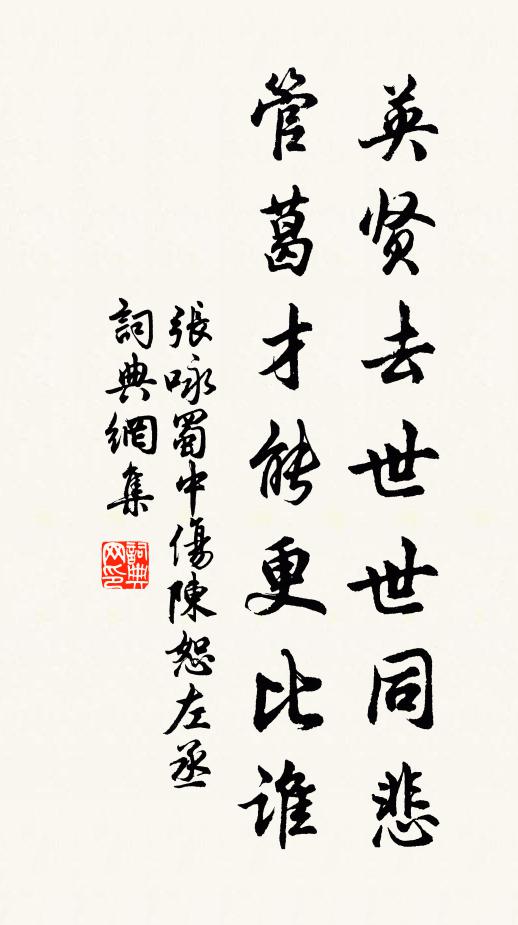 英贤去世世同悲
管葛才能更比誰
張咏蜀中傷陳恕左丞
詞典網集
詞典
网印